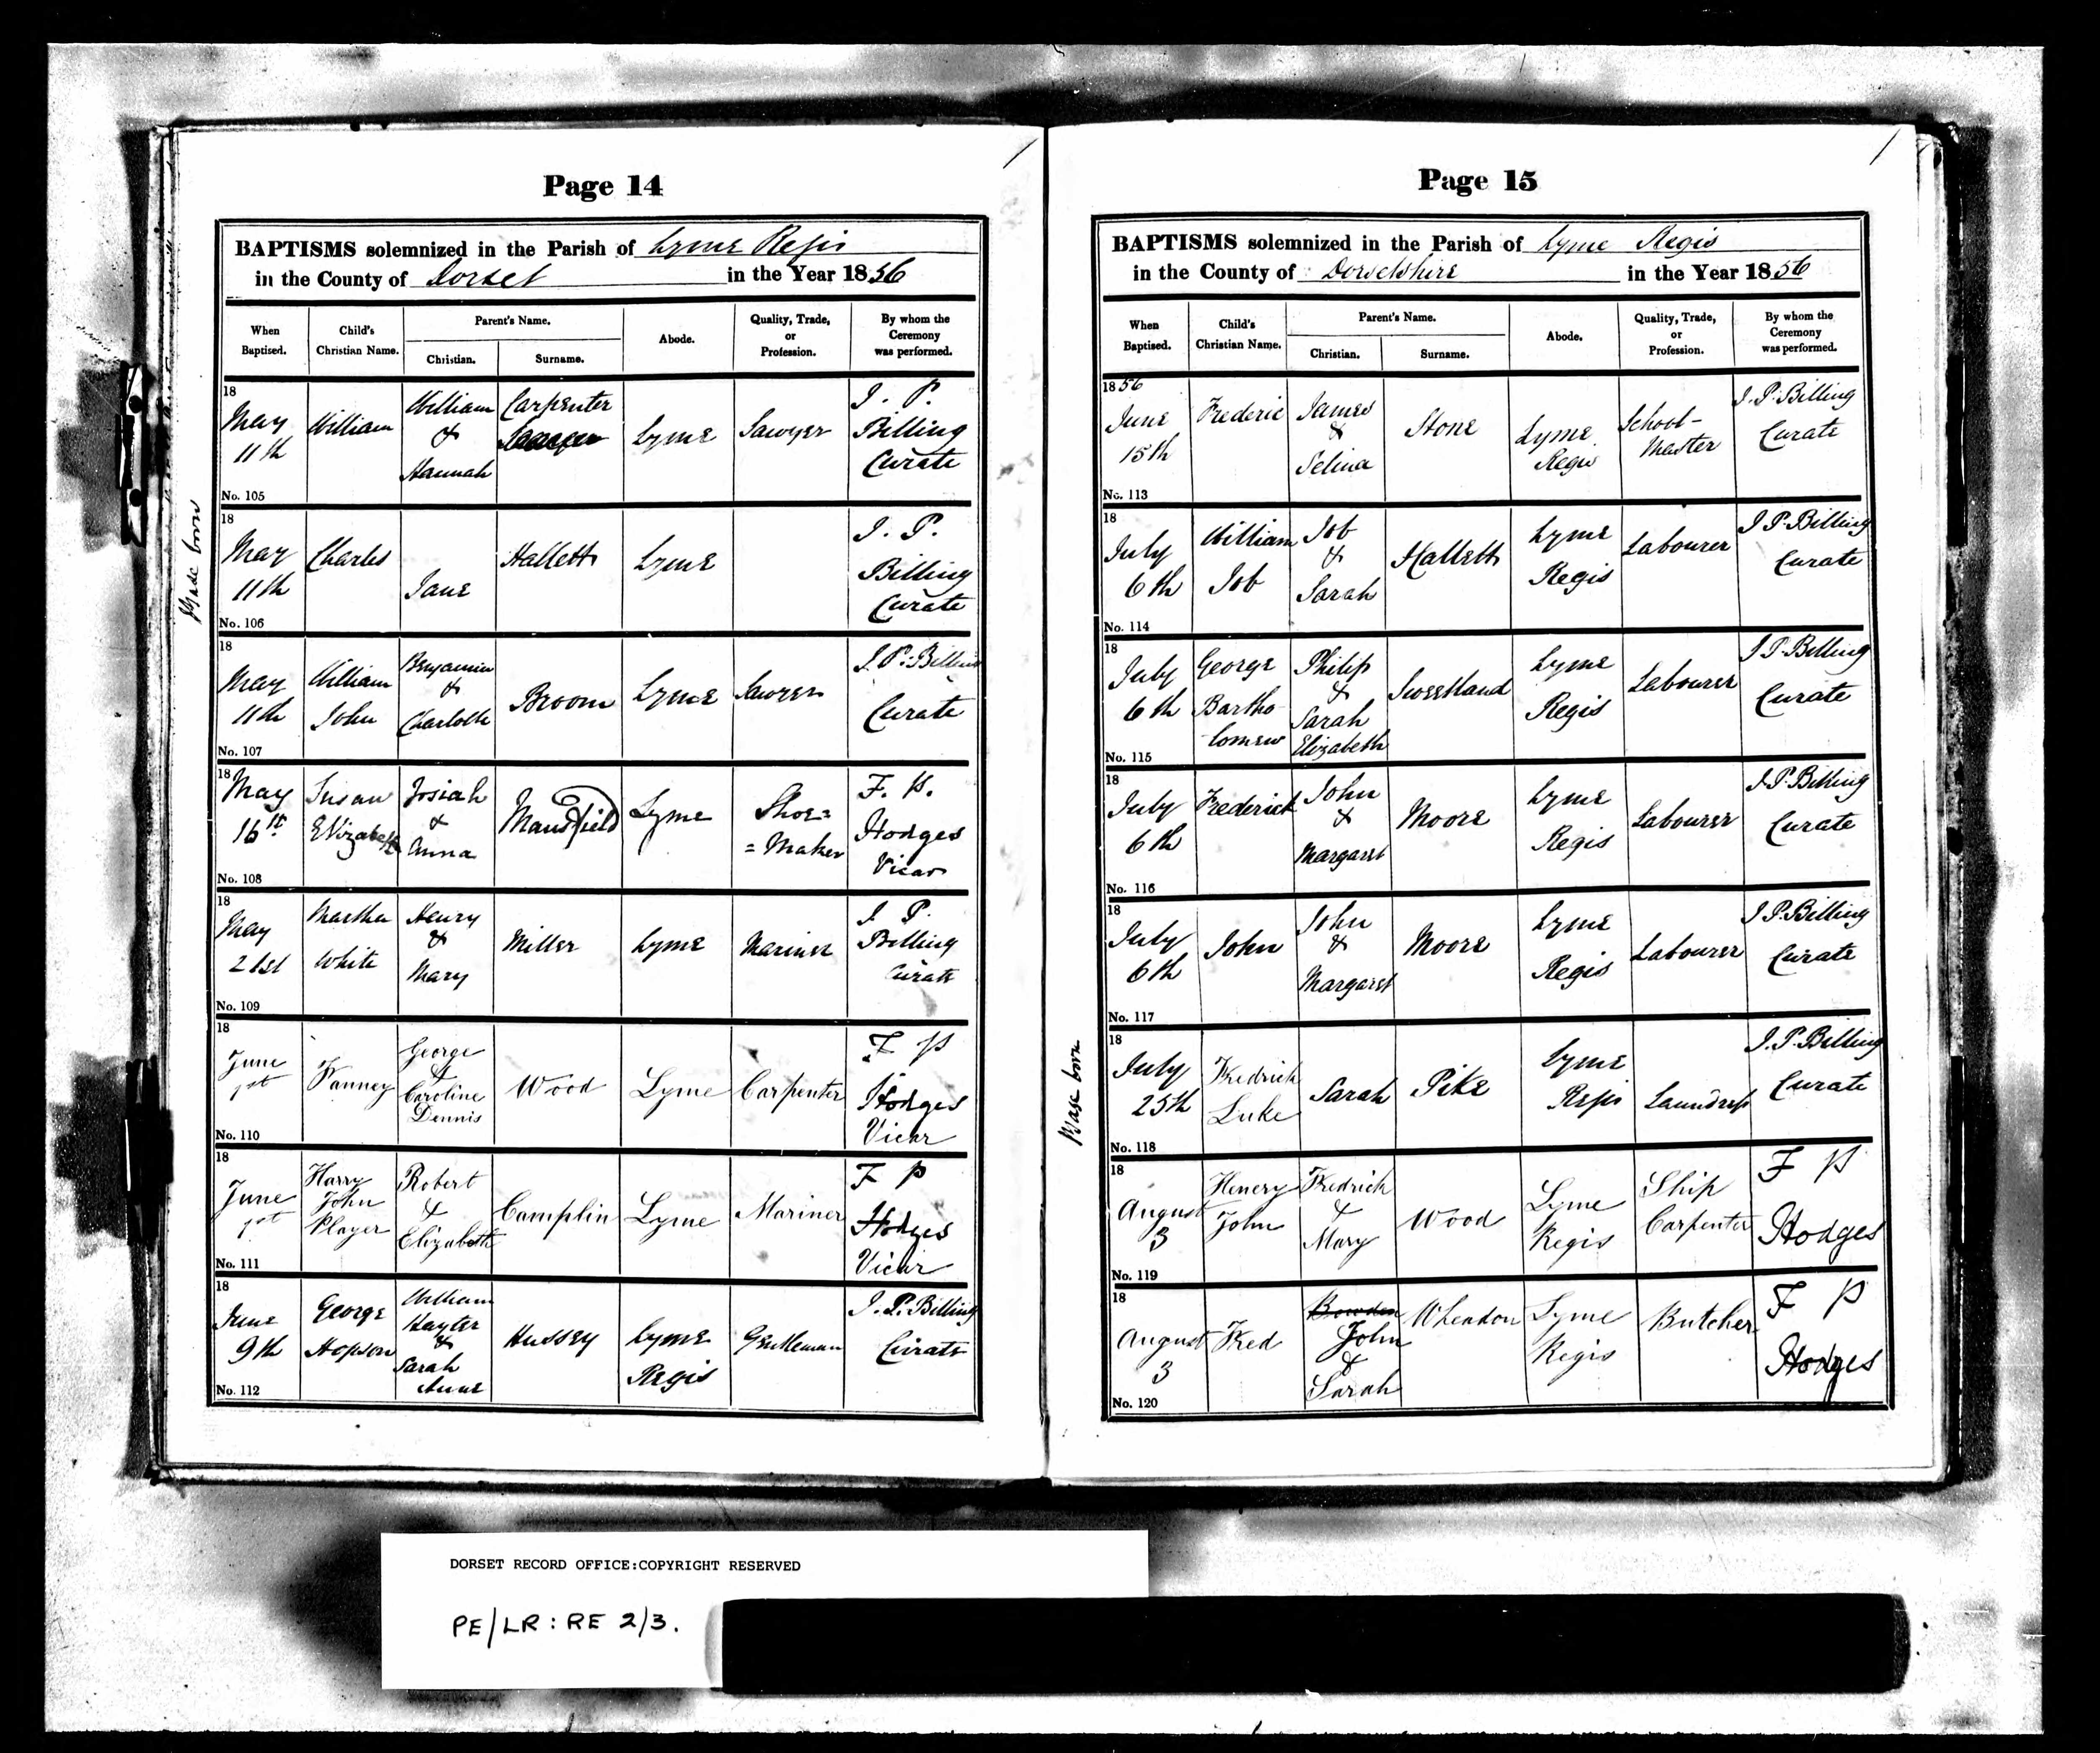 Page 14
BAPTISMS solemnized in the Parish of Lyme Regis
in the County of Dorset in the Year 1856
When Baptised. Child's Christian Name. Parent's Name. Christian. Surname. Abode. Quality, Trade, or Profession. By whom the Ceremony was performed.
18 May 11th William William & Hannah Carpenter Lyme Sawyer J. P. Billing Curate
No. 105
Base born
18 May 11th Charles Jane Hallett Lyme J. P. Billing Curate
No. 106
18 May 11th William John Benjamin & Charlotte Broom Lyme Sawyer J. P. Billing Curate
No. 107
18 May 16th Susan Elizabeth Josiah & Anna Mansfield Lyme Shoe= =Maker F. P. Hodges Vicar
No. 108
18 May 21st Martha White Henry & Mary Miller Lyme Mariner J. P. Billing Curate
No. 109
18 June 1st Fanney George & Caroline Dennis Wood Lyme Carpenter F P Hodges Vicar
No. 110
18 June 1st Harry John Player Robert & Elizabeth Camplin Lyme Mariner F P Hodges Vicar
No. 111
18 June 9th George Hopson William Hayter & Sarah Anne Hussey Lyme Regis Gentleman J. P. Billing Curate
No. 112
Page 15
BAPTISMS solemnized in the Parish of Lyme Regis
in the County of Dorsetshire in the Year 1856
When Baptised. Child's Christian Name. Parent's Name. Christian. Surname. Abode. Quality, Trade, or Profession. By whom the Ceremony was performed.
1856 June 15th Frederic James & Selina Stone Lyme Regis School-Master J. P. Billing Curate
No. 113
18 July 6th William Job Job & Sarah Hallett Lyme Regis Labourer J. P. Billing Curate
No. 114
18 July 6th George Bartho-lomew Philip & Sarah Elizabeth Sweetland Lyme Regis Labourer J. P. Billing Curate
No. 115
18 July 6th Frederick John & Margaret Moore Lyme Regis Labourer J. P. Billing Curate
No. 116
18 July 6th John John & Margaret Moore Lyme Regis Labourer J. P. Billing Curate
No. 117
Base born
18 July 25th Fredrick Luke Sarah Pike Lyme Regis Laundress J. P. Billing Curate
No. 118
18 August 3 Henery John Fredrick & Mary Wood Lyme Regis Ship Carpenter F P Hodges
No. 119
18 August 3 Fred Bowden John & Sarah Wheadon Lyme Regis Butcher F P Hodges
No. 120
DORSET RECORD OFFICE:COPYRIGHT RESERVED
PE/LR: RE 2/3.